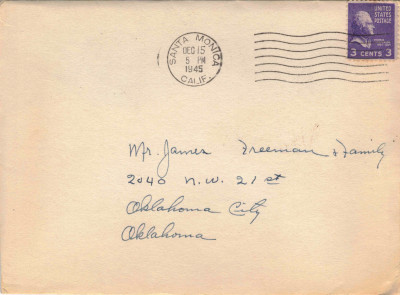 SANTA MONICA
DEC 15
5 PM
1945
CALIF.
UNITED STATES
POSTAGE
3 CENTS 3
Mr. James Freeman & Family
2040 N.W. 21 st
Oklahoma City
Oklahoma